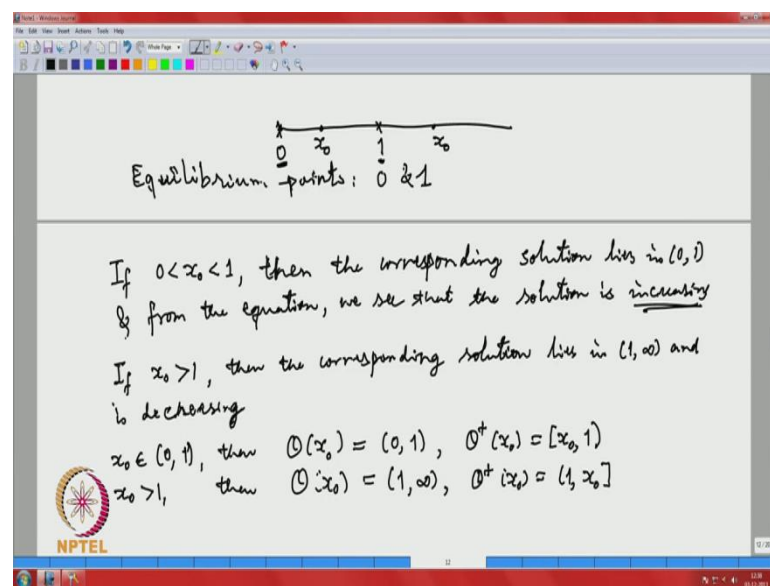 Note1 - Windows Journal
File Edit View Insert Actions Tools Help
Whole Page
0 x₀ 1 x₀
Equilibrium points: 0 & 1
If 0 < x₀ < 1, then the corresponding solution lies in (0, 1)
& from the equation, we see that the solution is increasing
If x₀ > 1, then the corresponding solution lies in (1, ∞) and
is decreasing
x₀ ∈ (0, 1), then O(x₀) = (0, 1), O⁺(x₀) = [x₀, 1)
x₀ > 1, then O(x₀) = (1, ∞), O⁺(x₀) = (1, x₀]
NPTEL
12